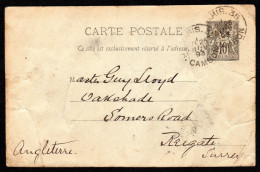 CARTE POSTALE
Ce côté est exclusivement réservé à l'adresse.
Master Guy Lloyd
Oakshade
Somers Road
Reigate
Surrey
Angleterre